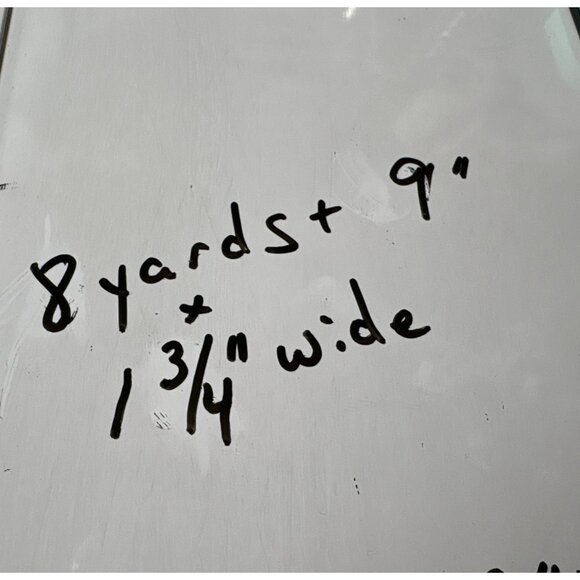 8 yards + 9"
x
1 3/4" wide